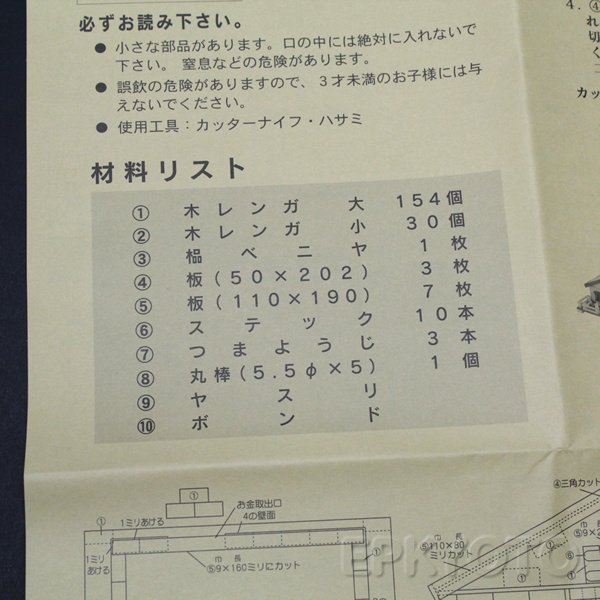 必ずお読み下さい。
● 小さな部品があります。口の中には絶対に入れないで
下さい。窒息などの危険があります。
● 誤飲の危険がありますので、3才未満のお子様には与
えないでください。
● 使用工具：カッターナイフ・ハサミ
材料リスト
① 木レンガ大 154個
② 木レンガ小 30個
③ 榀ベニヤ 1枚
④ 板(50×202) 3枚
⑤ 板(110×190) 7枚
⑥ ステック 10本
⑦ つまようじ 3本
⑧ 丸棒(5.5φ×5) 1個
⑨ ヤスリ
⑩ ボンド
4. ④
れ
切
く
カッ
①
お金取出口
4の壁面
① 1ミリあける
1ミリ
あける
巾 長
⑤9×160ミリにカット
①
④三角カット
巾 長
⑤110×80
ミリカット
巾 長
⑤9×2
①
EPKYOTO